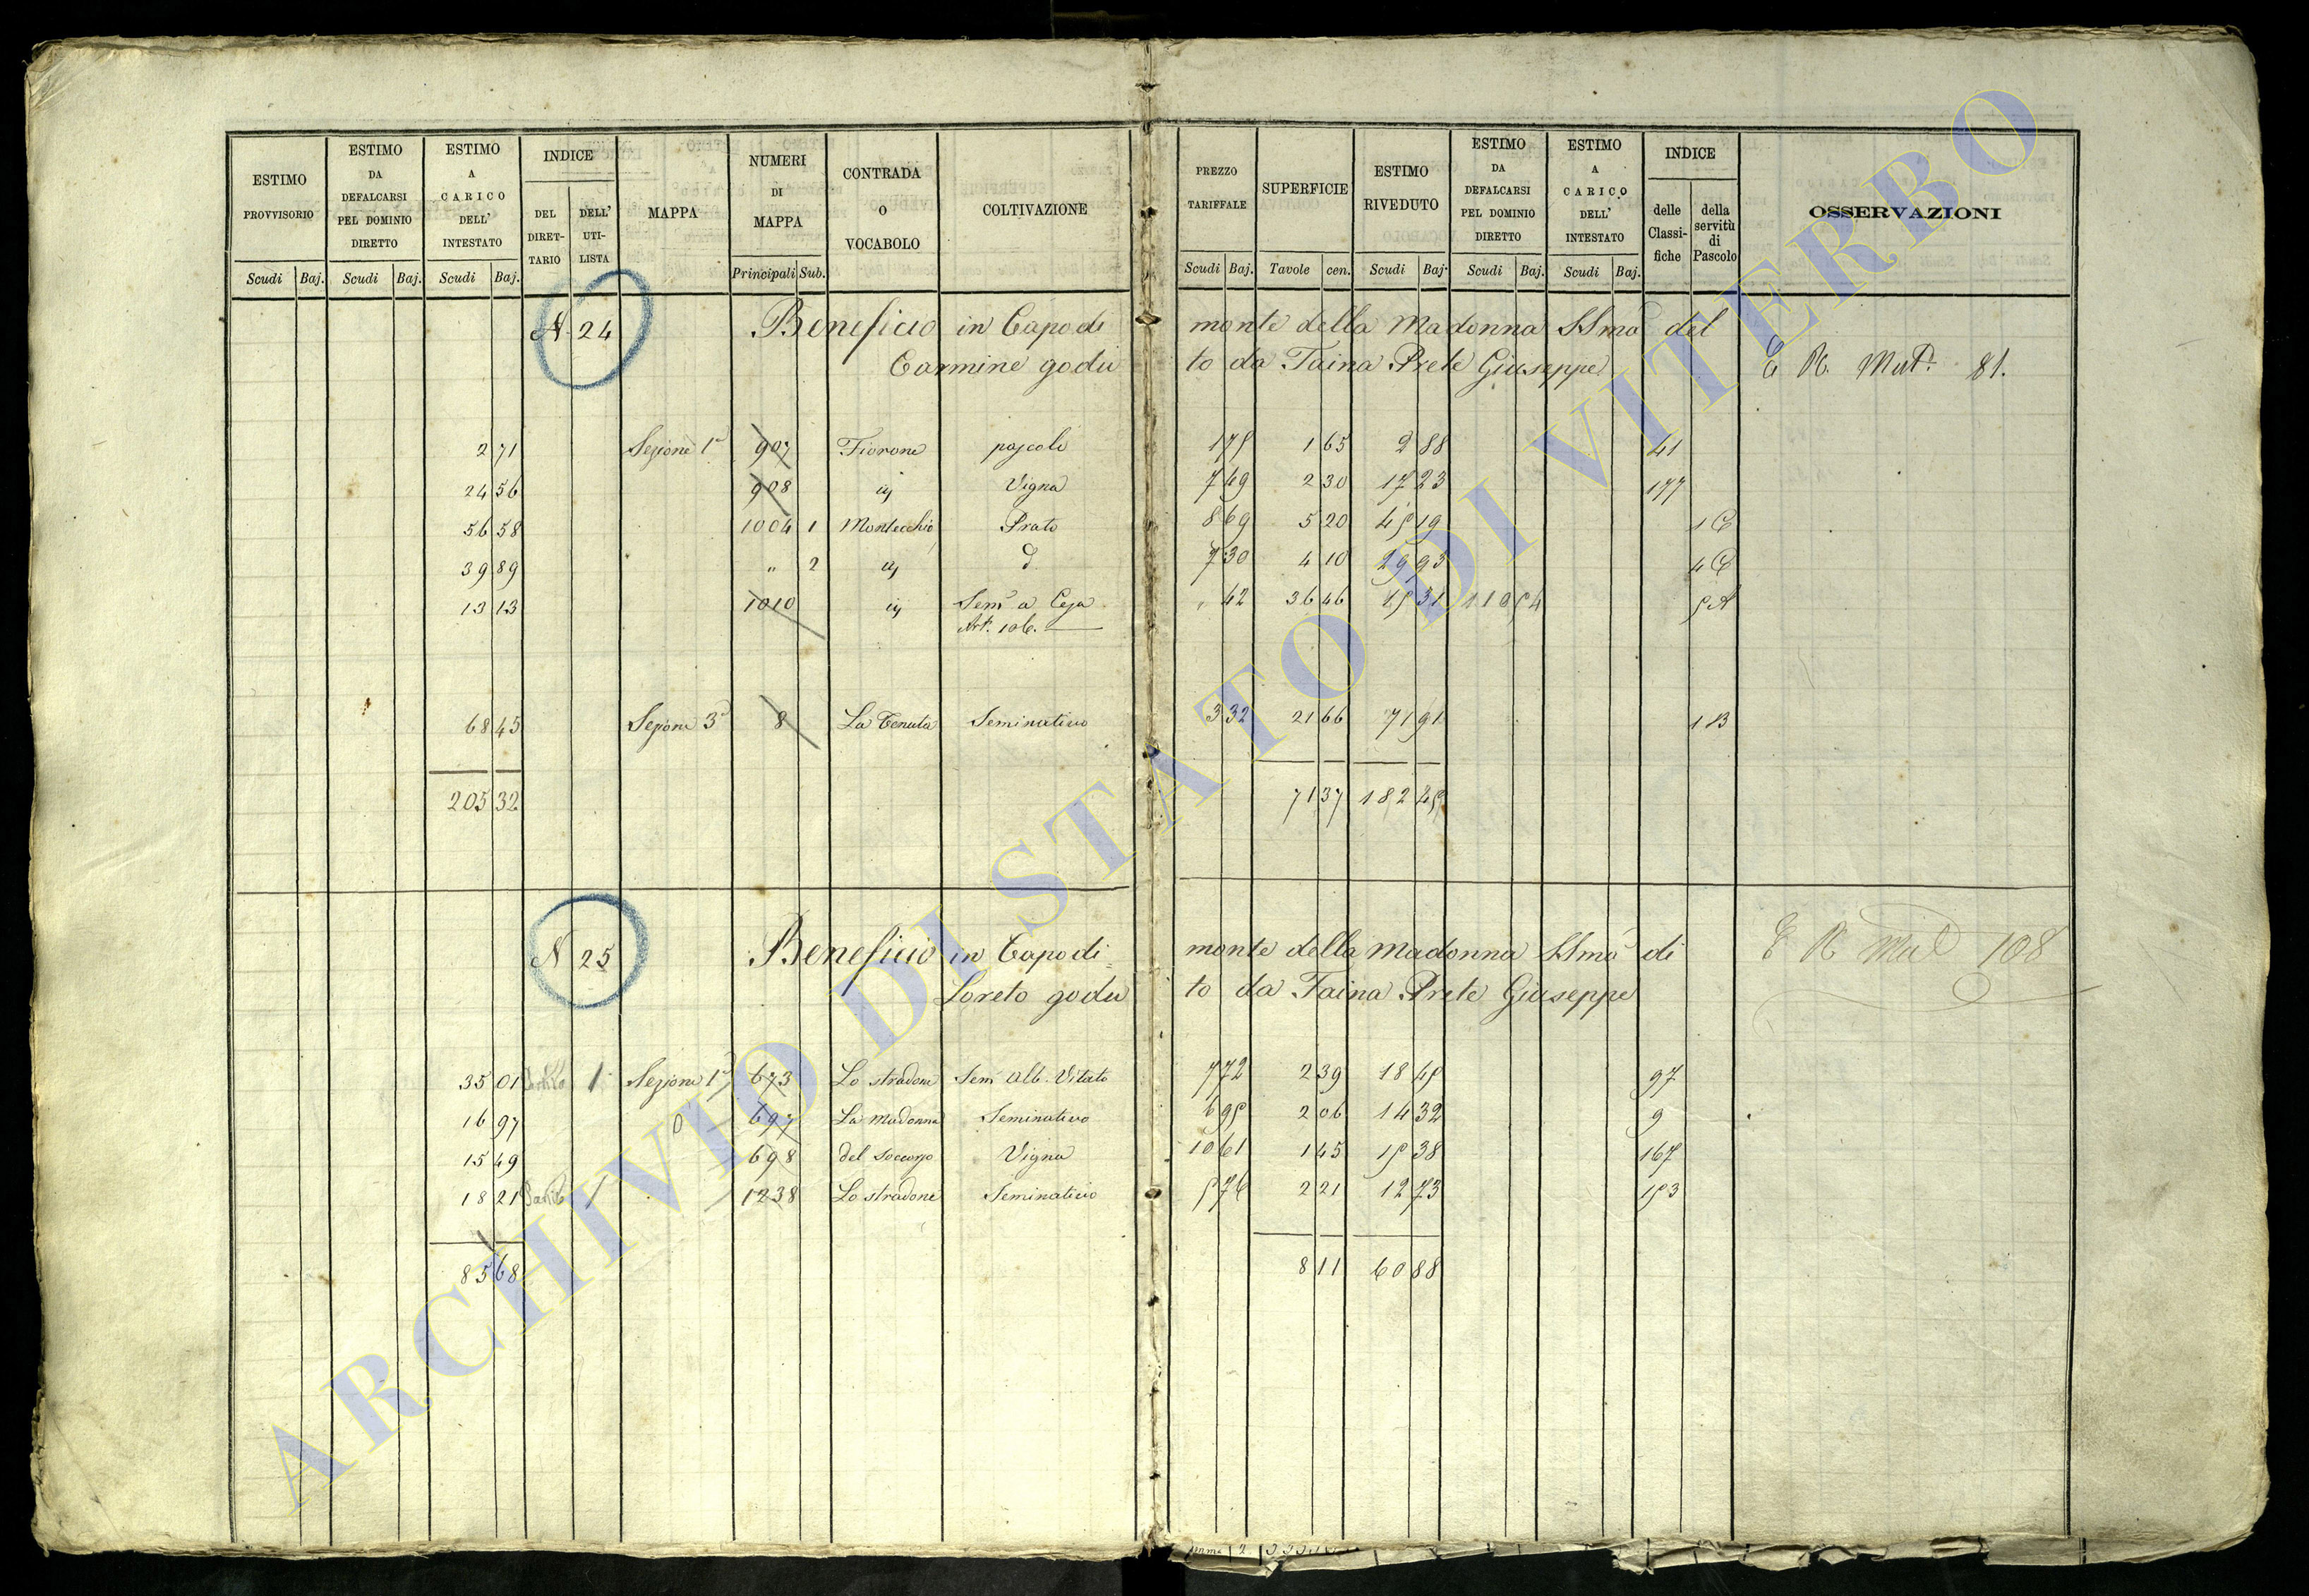 ESTIMO PROVVISORIO | ESTIMO DA DEFALCARSI PEL DOMINIO DIRETTO | ESTIMO A CARICO DELL' INTESTATO | INDICE DEL DIRETTARIO | DELL' UTILISTA | MAPPA | NUMERI DI MAPPA | CONTRADA O VOCABOLO | COLTIVAZIONE | PREZZO TARIFFALE | SUPERFICIE | ESTIMO RIVEDUTO | ESTIMO DA DEFALCARSI PEL DOMINIO DIRETTO | ESTIMO A CARICO DELL' INTESTATO | INDICE delle Classifiche | della servitù di Pascolo | OSSERVAZIONI
Scudi Baj. | Scudi Baj. | Scudi Baj. | Principali Sub. | Scudi Baj. | Tavole cen. | Scudi Baj. | Scudi Baj. | Scudi Baj.
N 24 Beneficio in Capodi monte della Madonna SSma del
Carmine godu to da Taina Prete Giuseppe 81.
2 71 Sezione 1a 907 Fiorone pascolo 1 75 1 65 2 88 41
24 56 908 Vigna 7 49 2 30 17 23 177
56 58 1004 1 Montecchio Prato 8 69 5 20 45 19 1 C
39 89 " 2 7 30 4 10 29 93 4 C
13 13 1010 Sem a Ceja " 42 36 46 15 31 5 A
Art. 106.
68 45 Sezione 3a 8 La Tenuta Seminativo 3 32 21 66 71 91 1 B
205 32 71 37 182 45
N 25 Beneficio in Capodi monte della Madonna SSma di 108
Loreto godu to da Taina Prete Giuseppe
35 01 1 Sezione 1a 673 Lo stradone Sem Alb. Vitato 7 72 2 39 18 45 97
16 97 697 La Madonna Seminativo 6 95 2 06 14 32 9
15 49 698 del Soccorso Vigna 10 61 1 45 15 38 167
18 21 1 1238 Lo stradone Seminativo 5 76 2 21 12 73 153
85 68 8 11 60 88
ARCHIVIO DI STATO DI VITERBO